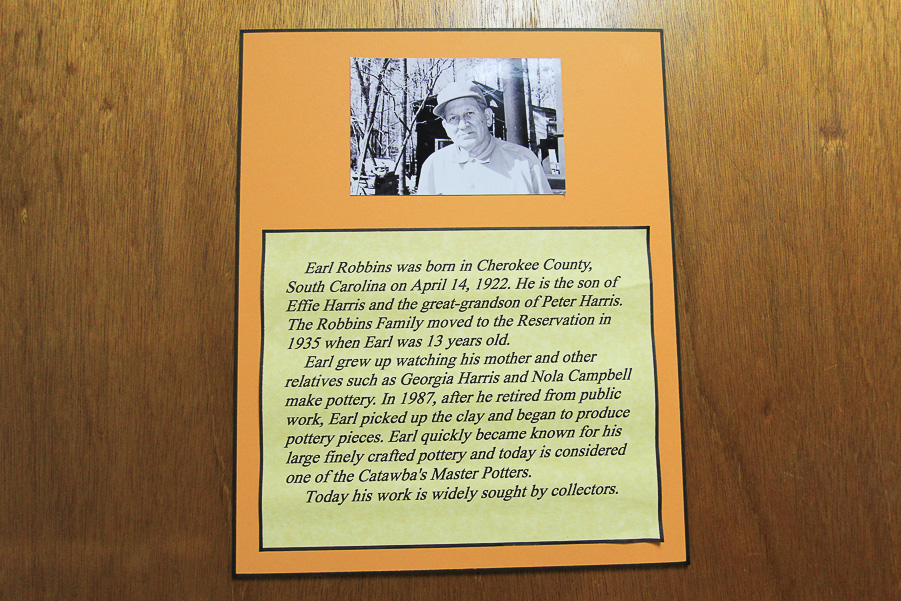 Earl Robbins was born in Cherokee County,
South Carolina on April 14, 1922. He is the son of
Effie Harris and the great-grandson of Peter Harris.
The Robbins Family moved to the Reservation in
1935 when Earl was 13 years old.
Earl grew up watching his mother and other
relatives such as Georgia Harris and Nola Campbell
make pottery. In 1987, after he retired from public
work, Earl picked up the clay and began to produce
pottery pieces. Earl quickly became known for his
large finely crafted pottery and today is considered
one of the Catawba's Master Potters.
Today his work is widely sought by collectors.